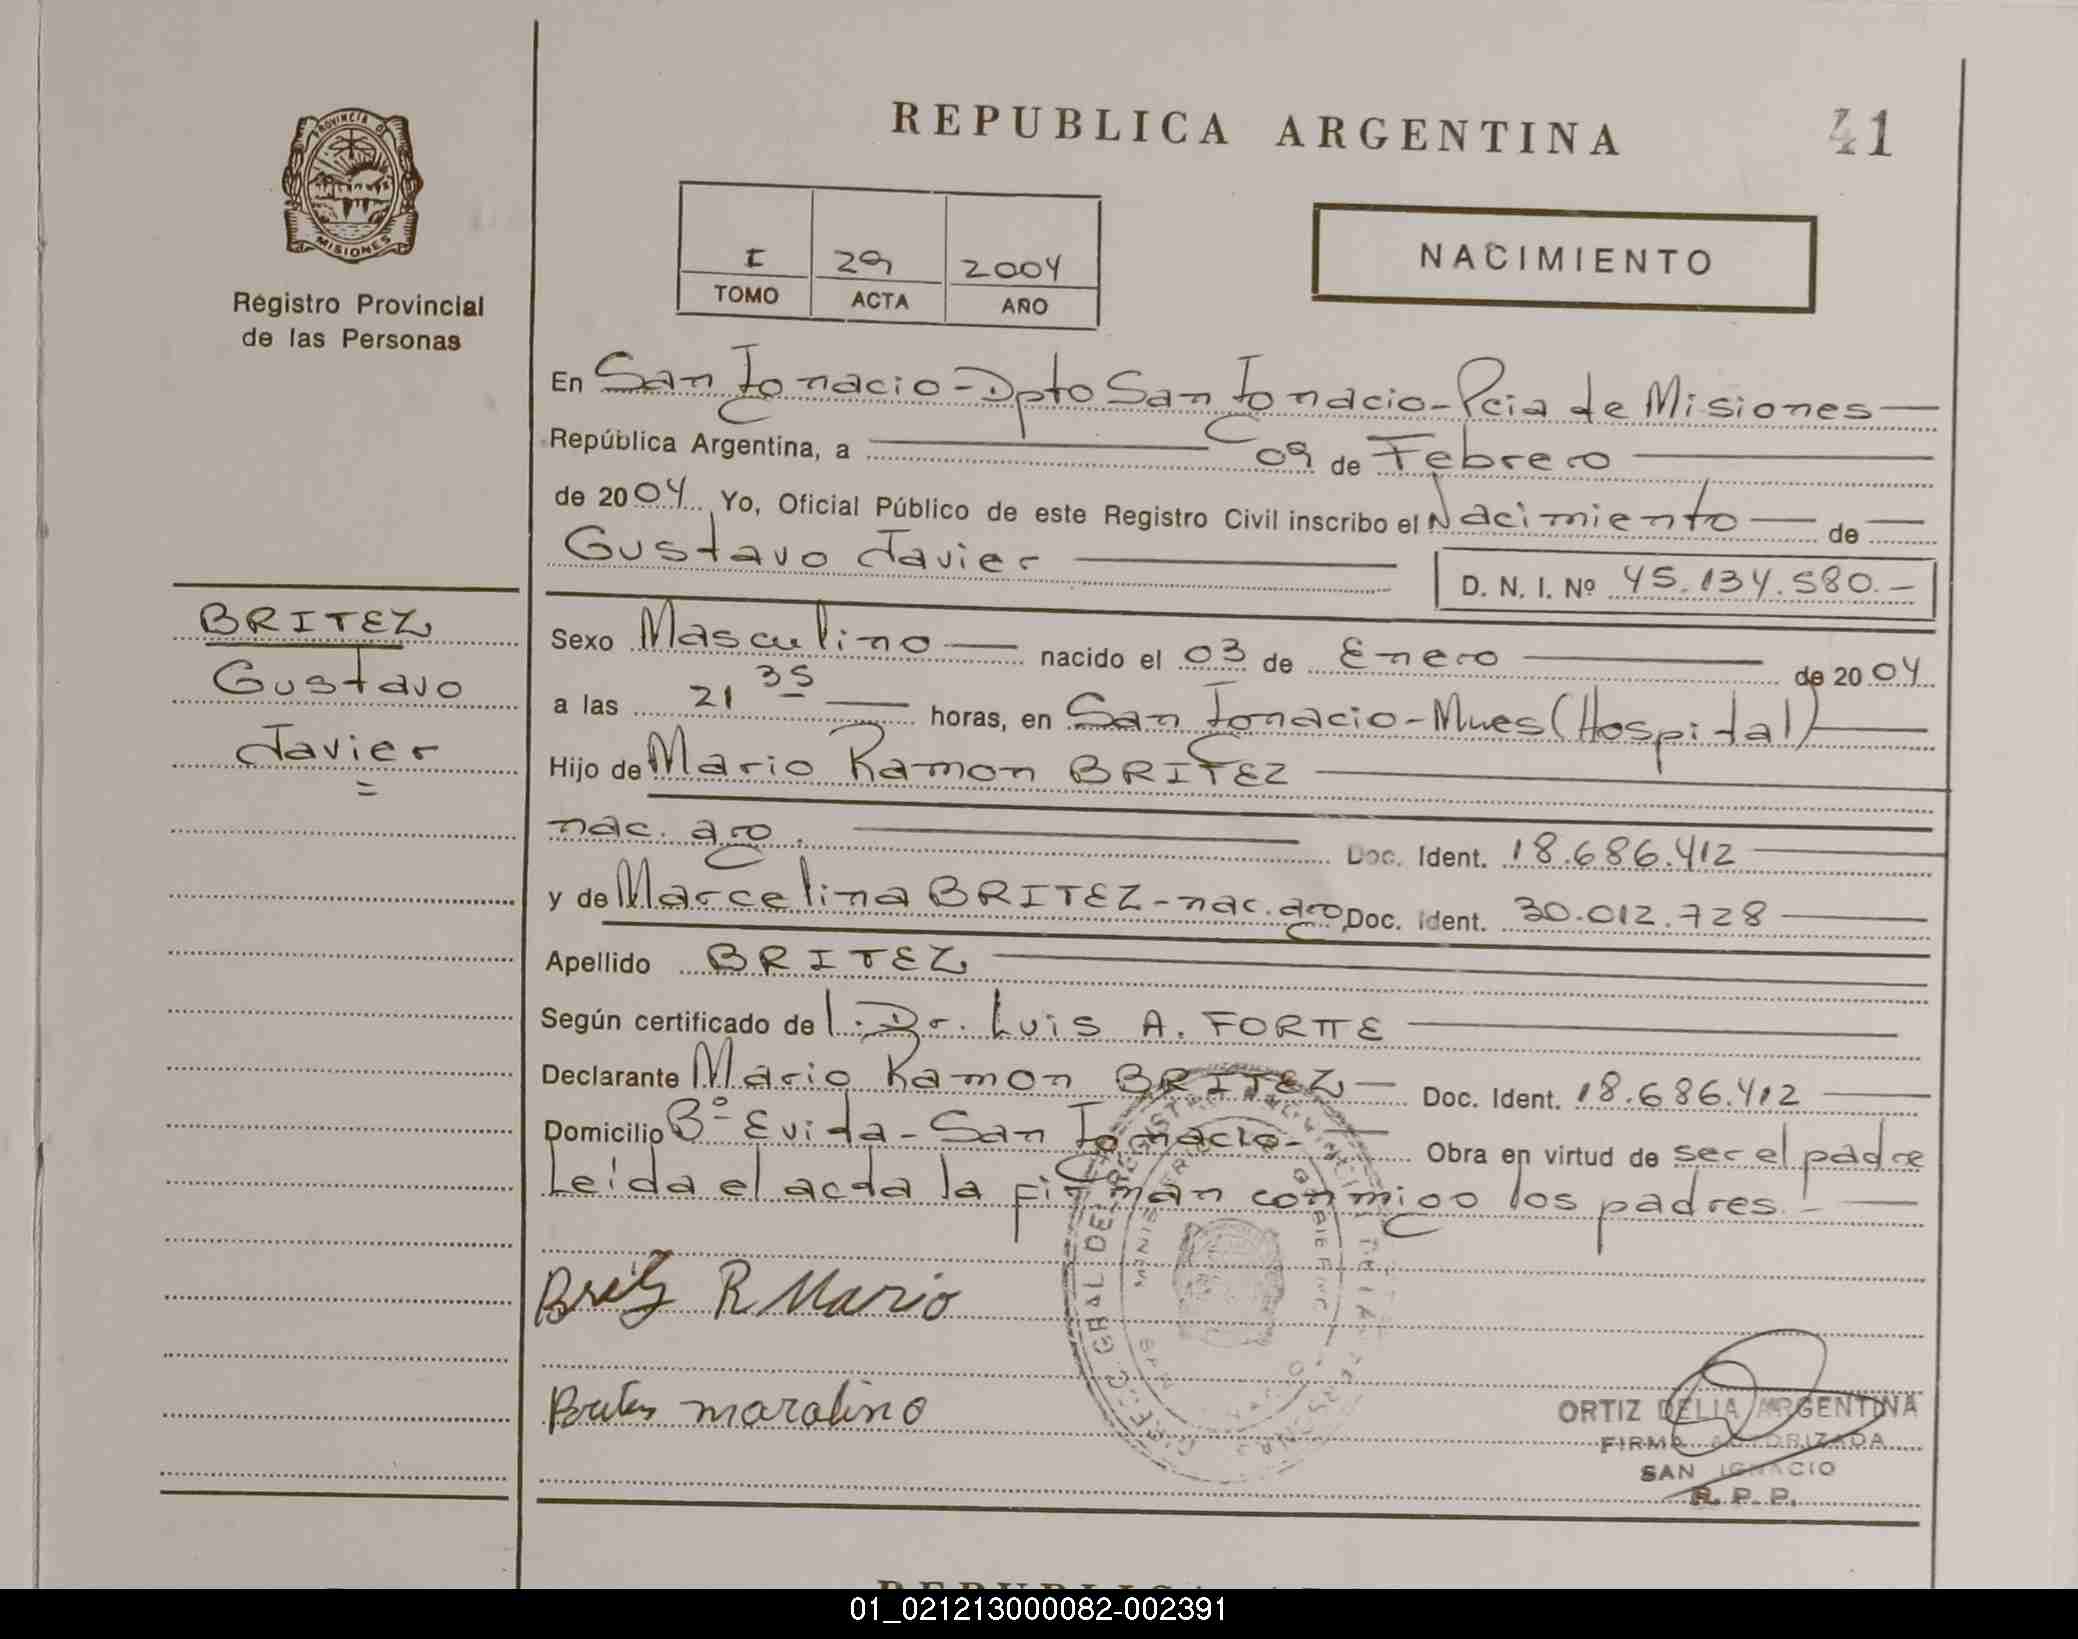 REPUBLICA ARGENTINA
41
PROVINCIA DE
MISIONES
Registro Provincial
de las Personas
I 29 2004
TOMO ACTA AÑO
NACIMIENTO
En San Ignacio - Dpto San Ignacio - Pcia de Misiones
República Argentina, a 09 de Febrero
de 2004 Yo, Oficial Público de este Registro Civil inscribo el Nacimiento de
Gustavo Javier
D. N. I. Nº 45.134.580.-
BRITEZ
Gustavo
Javier
Sexo Masculino nacido el 03 de Enero de 2004
a las 21 35 horas, en San Ignacio - Mnes (Hospital)
Hijo de Mario Ramon BRITEZ
nac. arg. Doc. Ident. 18.686.412
y de Marcelina BRITEZ - nac. arg Doc. Ident. 30.012.728
Apellido BRITEZ
Según certificado de l. Dr. Luis A. FORTTE
Declarante Mario Ramon BRITEZ Doc. Ident. 18.686.412
Domicilio Bº Evita - San Ignacio - Obra en virtud de ser el padre
Leida el acta la firman conmigo los padres.-
Britez R Mario
ORTIZ DELIA ARGENTINA
FIRMA AUTORIZADA
SAN IGNACIO
R. P. P.
01_021213000082-002391